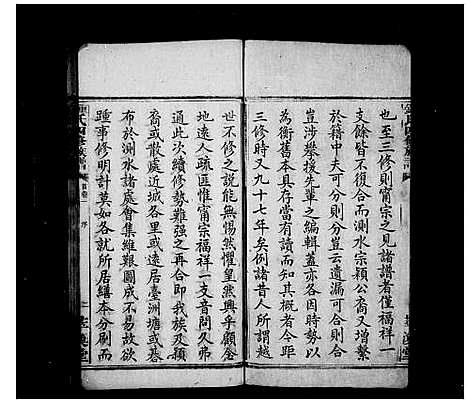 也至三修則甯宗之見諸譜者僅福祥一
支餘皆不復合而測水宗穎公裔又增繫
於籍中夫可分則分豈云遺漏可合則合
豈涉攀援先輩之編輯蓋亦各因時勢以
為衡舊本具存當有讀而知其概者今距
三修時又九十七年矣例諸昔人所謂越
世不修之說能無惕然懼皇然興乎顧登
地遠人疏匪惟甯宗福祥一支音問久弗
通此次續修勢難强之再合即我族及穎
裔或散處近城各里或遠居臺洲塘或棊
布於測水諸處會集維艱圖成不易故欲
踵事修明計莫如各就所居繕本分刷而
氏四修族譜
序